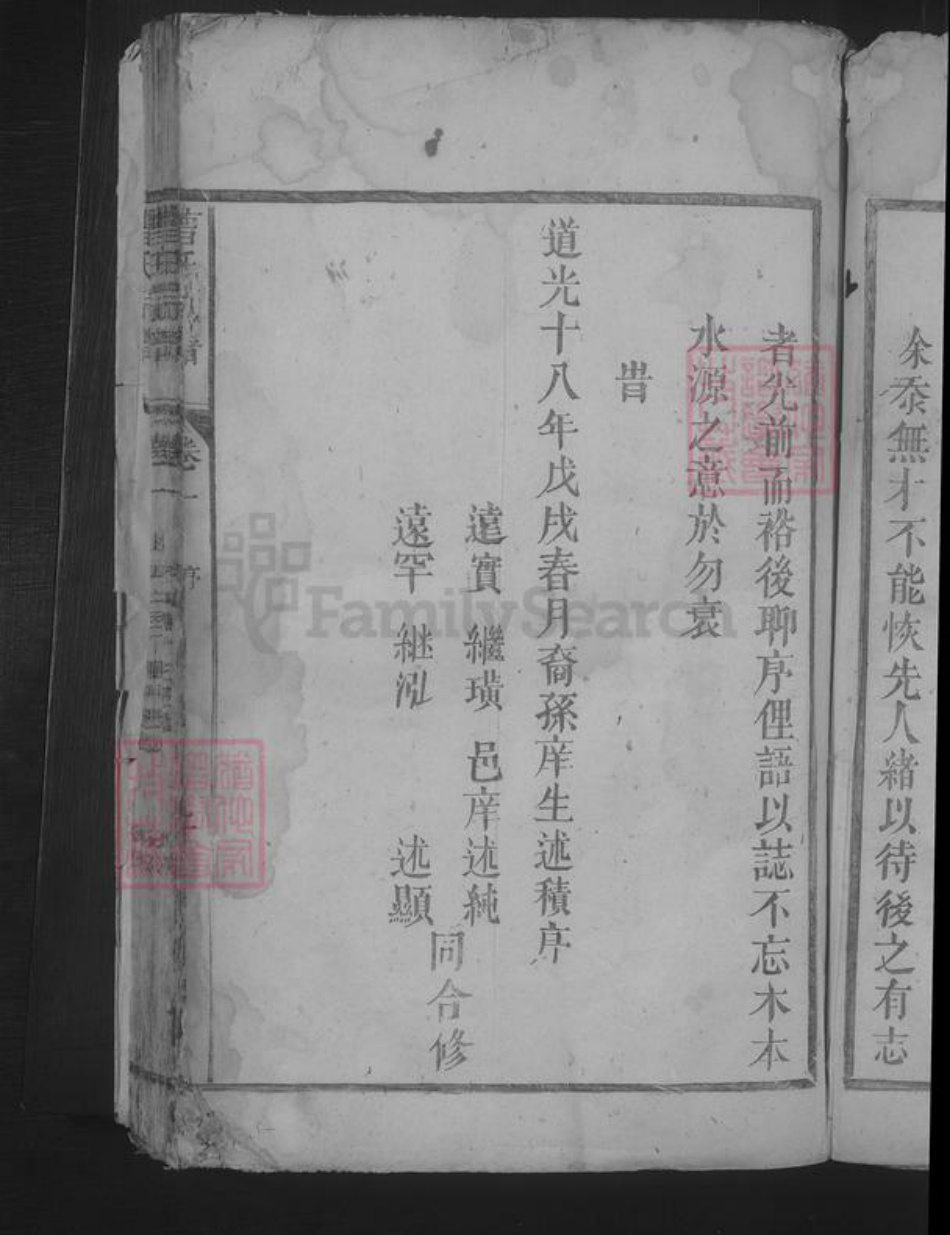 余忝無才不能恢先人緒以待後之有志
者光前而裕後聊序俚語以誌不忘木本
水源之意於勿衰
旹
道光十八年戊戌春月裔孫庠生述積序
遠實 繼璜 邑庠述純
遠罕 继泓 述顯
同合修
卷一 序
FamilySearch